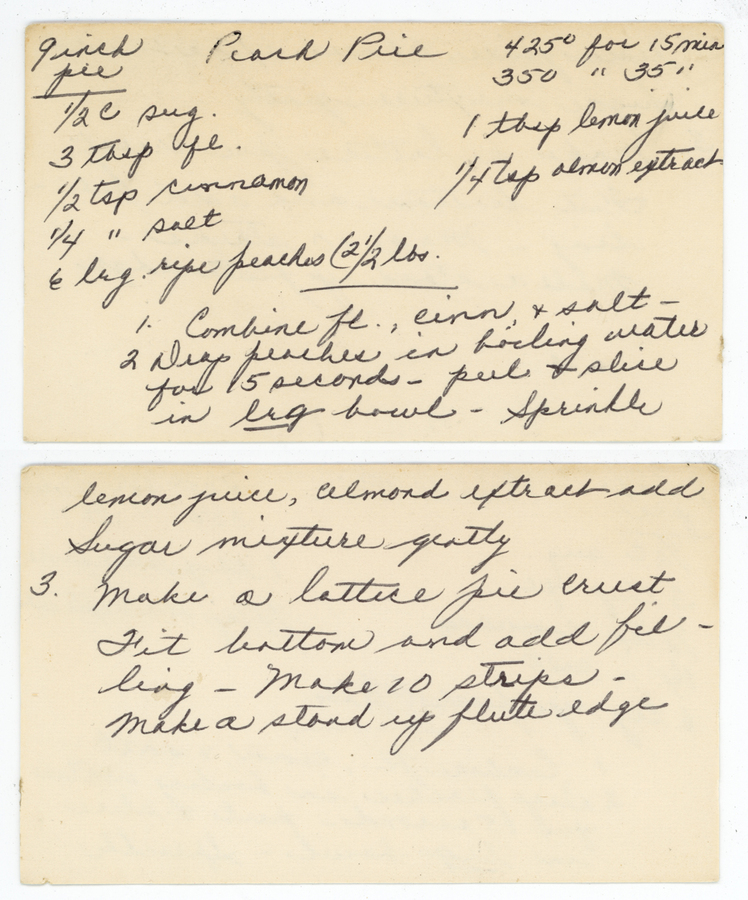 9 inch pie
Peach Pie
425° for 15 min
350 " 35 "
1/2 C sug.
3 tbsp fl.
1/2 tsp cinnamon
1/4 " salt
6 lrg. ripe peaches (2 1/2 lbs.
1 tbsp lemon juice
1/4 tsp almon extract
1. Combine fl., cinn, & salt -
2 Drop peaches in boiling water
for 15 seconds - peel & slice
in lrg bowl - Sprinkle
lemon juice, almond extract add
Sugar mixture gently
3. Make a lattice pie crust
Fit bottom and add fil-
ling - Make 10 strips -
Make a stand up flute edge